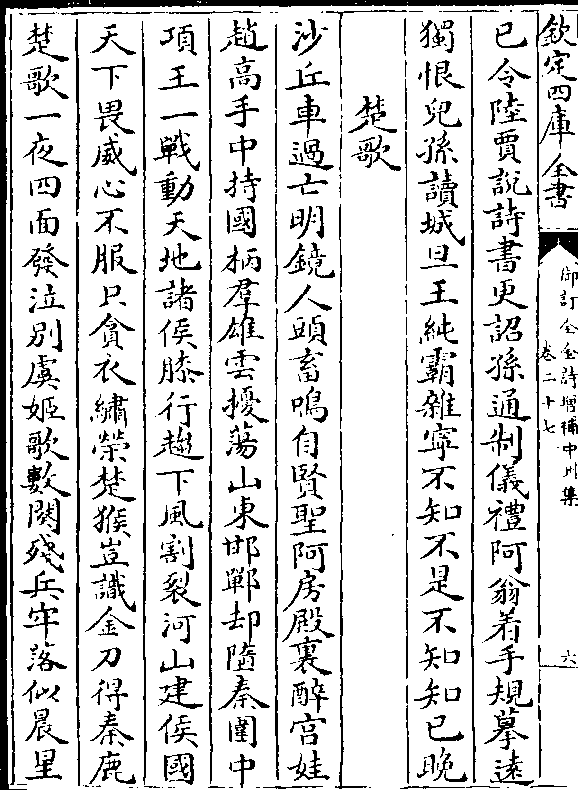 欽定四庫全書
御訂全金詩增補中州集
卷二十七
六
已令陸賈説詩書更詔孫通制儀禮阿翁着手規摹遠
獨恨兒孫讀城旦王純霸雜寜不知不是不知知已晚
楚歌
沙丘車過亡明鏡人頭畜鳴自賢聖阿房殿裏醉宫娃
趙高手中持國柄羣雄雲擾蕩山東邯鄲却墮秦圍中
項王一戰動天地諸侯膝行趨下風割裂河山建侯國
天下畏威心不服只貪衣繡榮楚猴豈識金刀得秦鹿
楚歌一夜四面發泣别虞姬歌數闋殘兵牢落似晨星